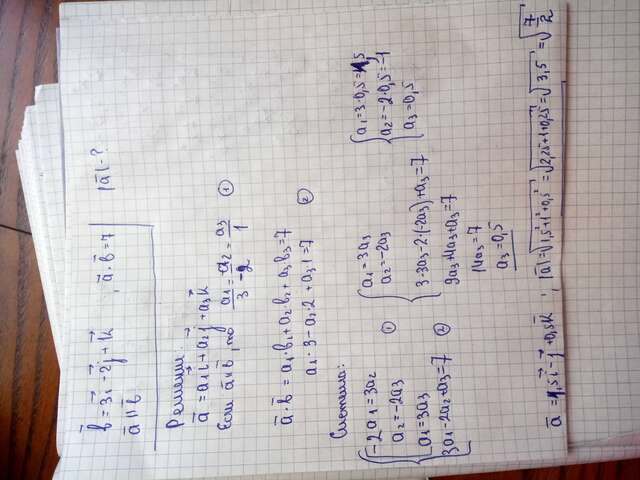 b̄ = 3i⃗ - 2j⃗ + k⃗
ā ∥ b̄ , ā · b̄ = 7 |ā| - ?
Решение:
ā = a₁i⃗ + a₂j⃗ + a₃k⃗
Если ā ∥ b̄, то a₁/3 = a₂/-2 = a₃/1 ①
ā · b̄ = a₁·b₁ + a₂·b₂ + a₃b₃ = 7
a₁·3 - a₂·2 + a₃·1 = 7 ②
Система:
{ -2a₁ = 3a₂
a₂ = -2a₃ ①
a₁ = 3a₃
3a₁ - 2a₂ + a₃ = 7 ②
{ a₁ = 3a₃
a₂ = -2a₃
3·3a₃ - 2·(-2a₃) + a₃ = 7
9a₃ + 4a₃ + a₃ = 7
14a₃ = 7
a₃ = 0,5
{ a₁ = 3·0,5 = 1,5
a₂ = -2·0,5 = -1
a₃ = 0,5
ā = 1,5i⃗ - j⃗ + 0,5k⃗ ; |ā| = √(1,5² + 1² + 0,5²) = √(2,25 + 1 + 0,25) = √3,5 = √(7/2)